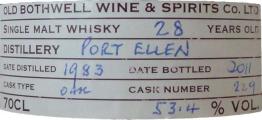 OLD BOTHWELL WINE & SPIRITS CO. LTD
SINGLE MALT WHISKY 28 YEARS OLD
DISTILLERY PORT ELLEN
DATE DISTILLED 1983 DATE BOTTLED 2011
CASK TYPE OAK CASK NUMBER 229
70CL 53.4 % VOL